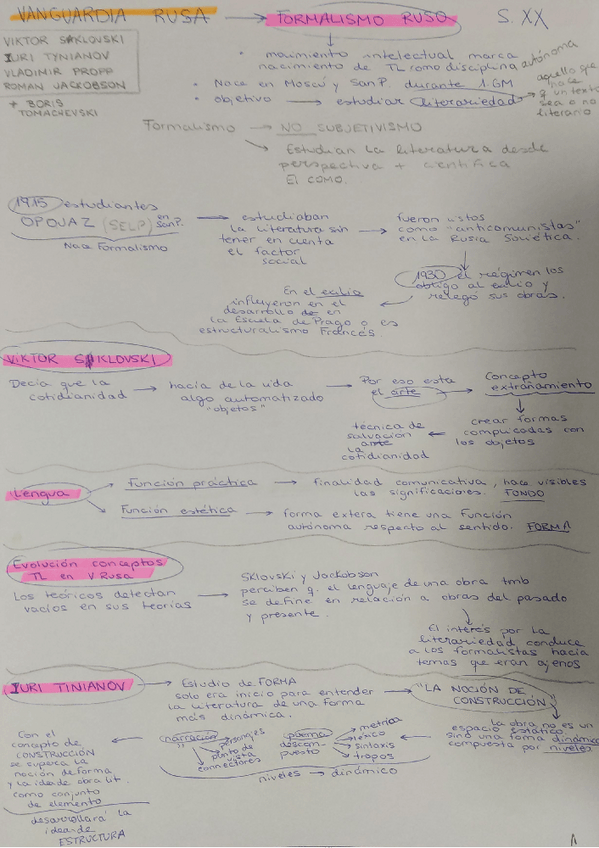 VANGUARDIA RUSA → FORMALISMO RUSO S. XX
VIKTOR SKLOVSKI
IURI TYNIANOV
VLADIMIR PROPP
ROMAN JACKOBSON
+ BORIS
TOMACHEVSKI
• movimiento intelectual marca
nacimiento de TL como disciplina autónoma
• Nace en Moscú y San P. durante 1 GM
• objetivo → estudiar literariedad → aquello que
hace
q un texto
sea o no
literario
Formalismo → NO SUBJETIVISMO
→ Estudian la literatura desde
perspectiva + científica
El COMO.
1915 estudiantes
OPOJAZ (SELP) en San P.
Nace Formalismo
→ estudiaban
la literatura sin
tener en cuenta
el factor
social
→ fueron vistos
como "anticomunistas"
en la Rusia Soviética.
1930 el régimen los
obligó al exilio y
relegó sus obras.
En el exilio
influyeron en el
desarrollo de en
la Escuela de Praga o es
estructuralismo Francés.
VIKTOR SKLOVSKI
Decía que la
cotidianidad
→ hacía de la vida
algo automatizado
"objetos"
→ Por eso esta
el arte
→ Concepto
extrañamiento
crear formas
complicadas con
los objetos
técnica de
salvación
arte
la
cotidianidad
Lengua
Función práctica → finalidad comunicativa, hace visibles
las significaciones. FONDO
Función estética → forma extera tiene una función
autónoma respecto al sentido. FORMA
Evolución conceptos
TL en V Rusa
Los teóricos detectan
vacíos en sus teorías
→ SKlovski y Jackobson
perciben q. el lenguaje de una obra tmb
se define en relación a obras del pasado
y presente.
El interés por la
literariedad conduce
a los formalistas hacía
temas que eran ajenos
IURI TINIANOV
→ Estudio de FORMA
solo era inicio para entender
la literatura de una forma
más dinámica.
→ "LA NOCIÓN DE
CONSTRUCCIÓN"
La obra no es un
espacio estático,
sino una toma dinámica
compuesta por niveles
poema
descom-
puesto
metrica
léxico
sintaxis
tropos
narración
personajes
punto de
vista
connectores
niveles → dinámico
Con el
concepto de
CONSTRUCCIÓN
se supera la
noción de forma
y la idea de obra lit.
como conjunto
de elemento
desarrollará la
idea de
ESTRUCTURA
1